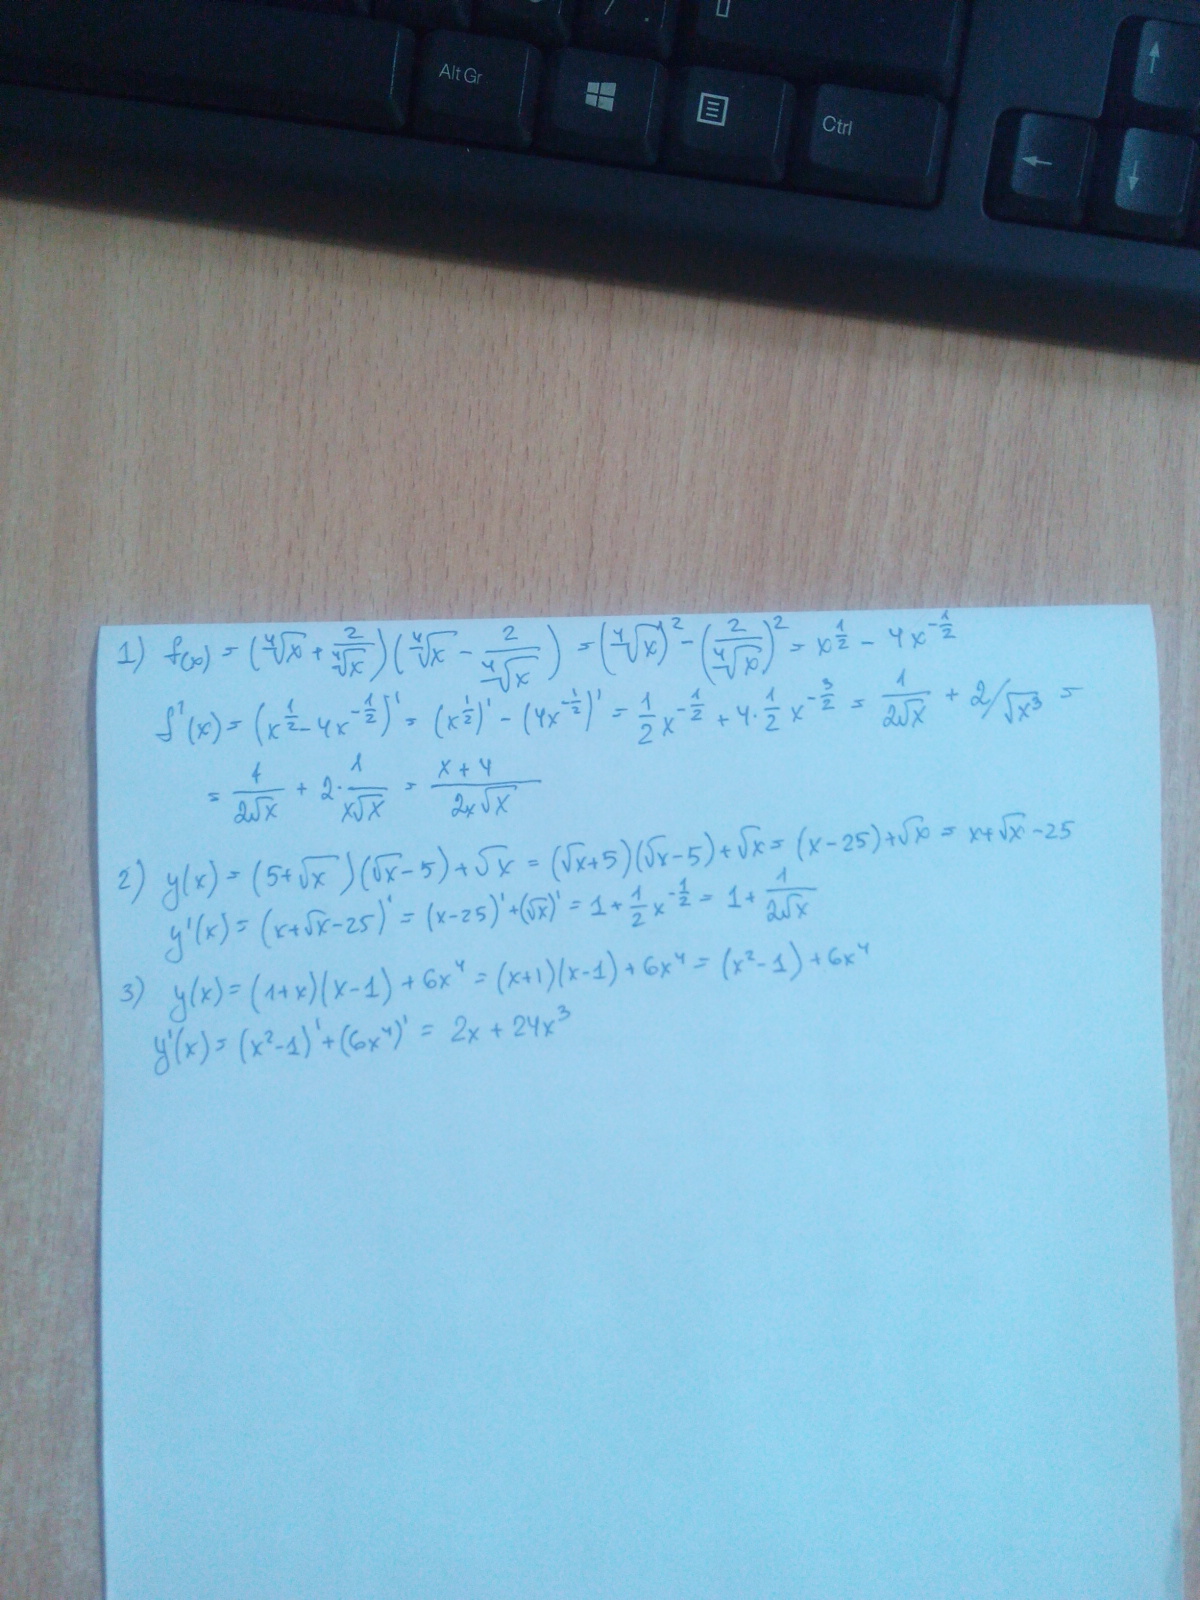 Alt Gr
Ctrl
1) f(x) = (∜x + 2/∜x)(∜x - 2/∜x) = (∜x)² - (2/∜x)² = x^(1/2) - 4x^(-1/2)
f'(x) = (x^(1/2) - 4x^(-1/2))' = (x^(1/2))' - (4x^(-1/2))' = 1/2 x^(-1/2) + 4·1/2 x^(-3/2) = 1/(2√x) + 2/√x³ =
= 1/(2√x) + 2·1/(x√x) = (x+4)/(2x√x)
2) y(x) = (5+√x)(√x-5)+√x = (√x+5)(√x-5)+√x = (x-25)+√x = x+√x-25
y'(x) = (x+√x-25)' = (x-25)'+(√x)' = 1+1/2 x^(-1/2) = 1+1/(2√x)
3) y(x) = (1+x)(x-1)+6x⁴ = (x+1)(x-1)+6x⁴ = (x²-1)+6x⁴
y'(x) = (x²-1)'+(6x⁴)' = 2x+24x³